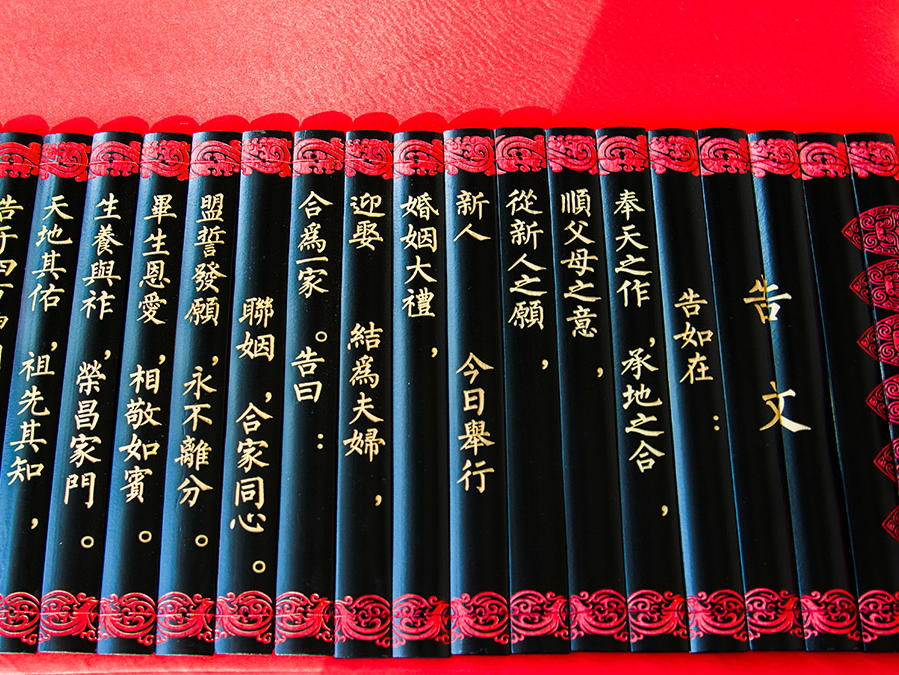 告文
告如在：
奉天之作，承地之合，
順父母之意，
從新人之願，
新人 今日舉行
婚姻大禮，
迎娶 結爲夫婦，
合爲一家。告曰：
聯姻，合家同心。
盟誓發願，永不離分。
畢生恩愛，相敬如賓。
生養與祚，榮昌家門。
天地其佑，祖先其知，
告于四